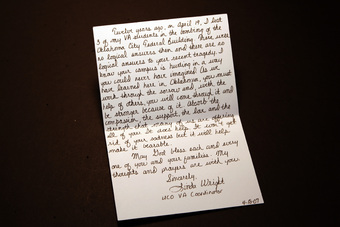 Twelve years ago, on April 19, I lost
3 of my VA students in the bombing of the
Oklahoma City Federal Building. There were
no logical answers then and there are no
logical answers to your recent tragedy. I
know your campus is hurting in a way
you could never have imagined. As we
have learned here in Oklahoma, you must
work through the sorrow and, with the
help of others, you will come through it and
be stronger because of it. Absorb the
compassion, the support, the love and the
strength that many of us are offering
all of you. It won't get
rid of your sadness but it will help
make it bearable.
May God bless each and every
one of you and your families. My
thoughts and prayers are with you.
Sincerely,
Linda Wright
UCO VA Coordinator
4-18-07